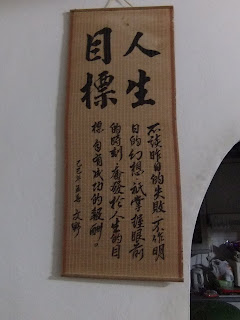 人生
目標
不談昨日的失敗 不作明
日的幻想 祇掌握眼前
的時刻 奮發於人生的目
標 自有成功的報酬。
己巳年